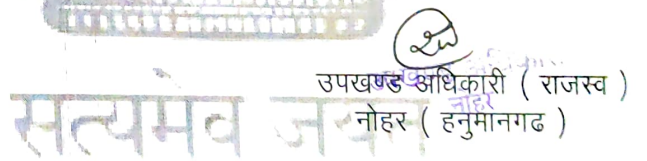 उपखण्ड अधिकारी ( राजस्व )
नोहर
नोहर ( हनुमानगढ )
सत्यमेव जयते